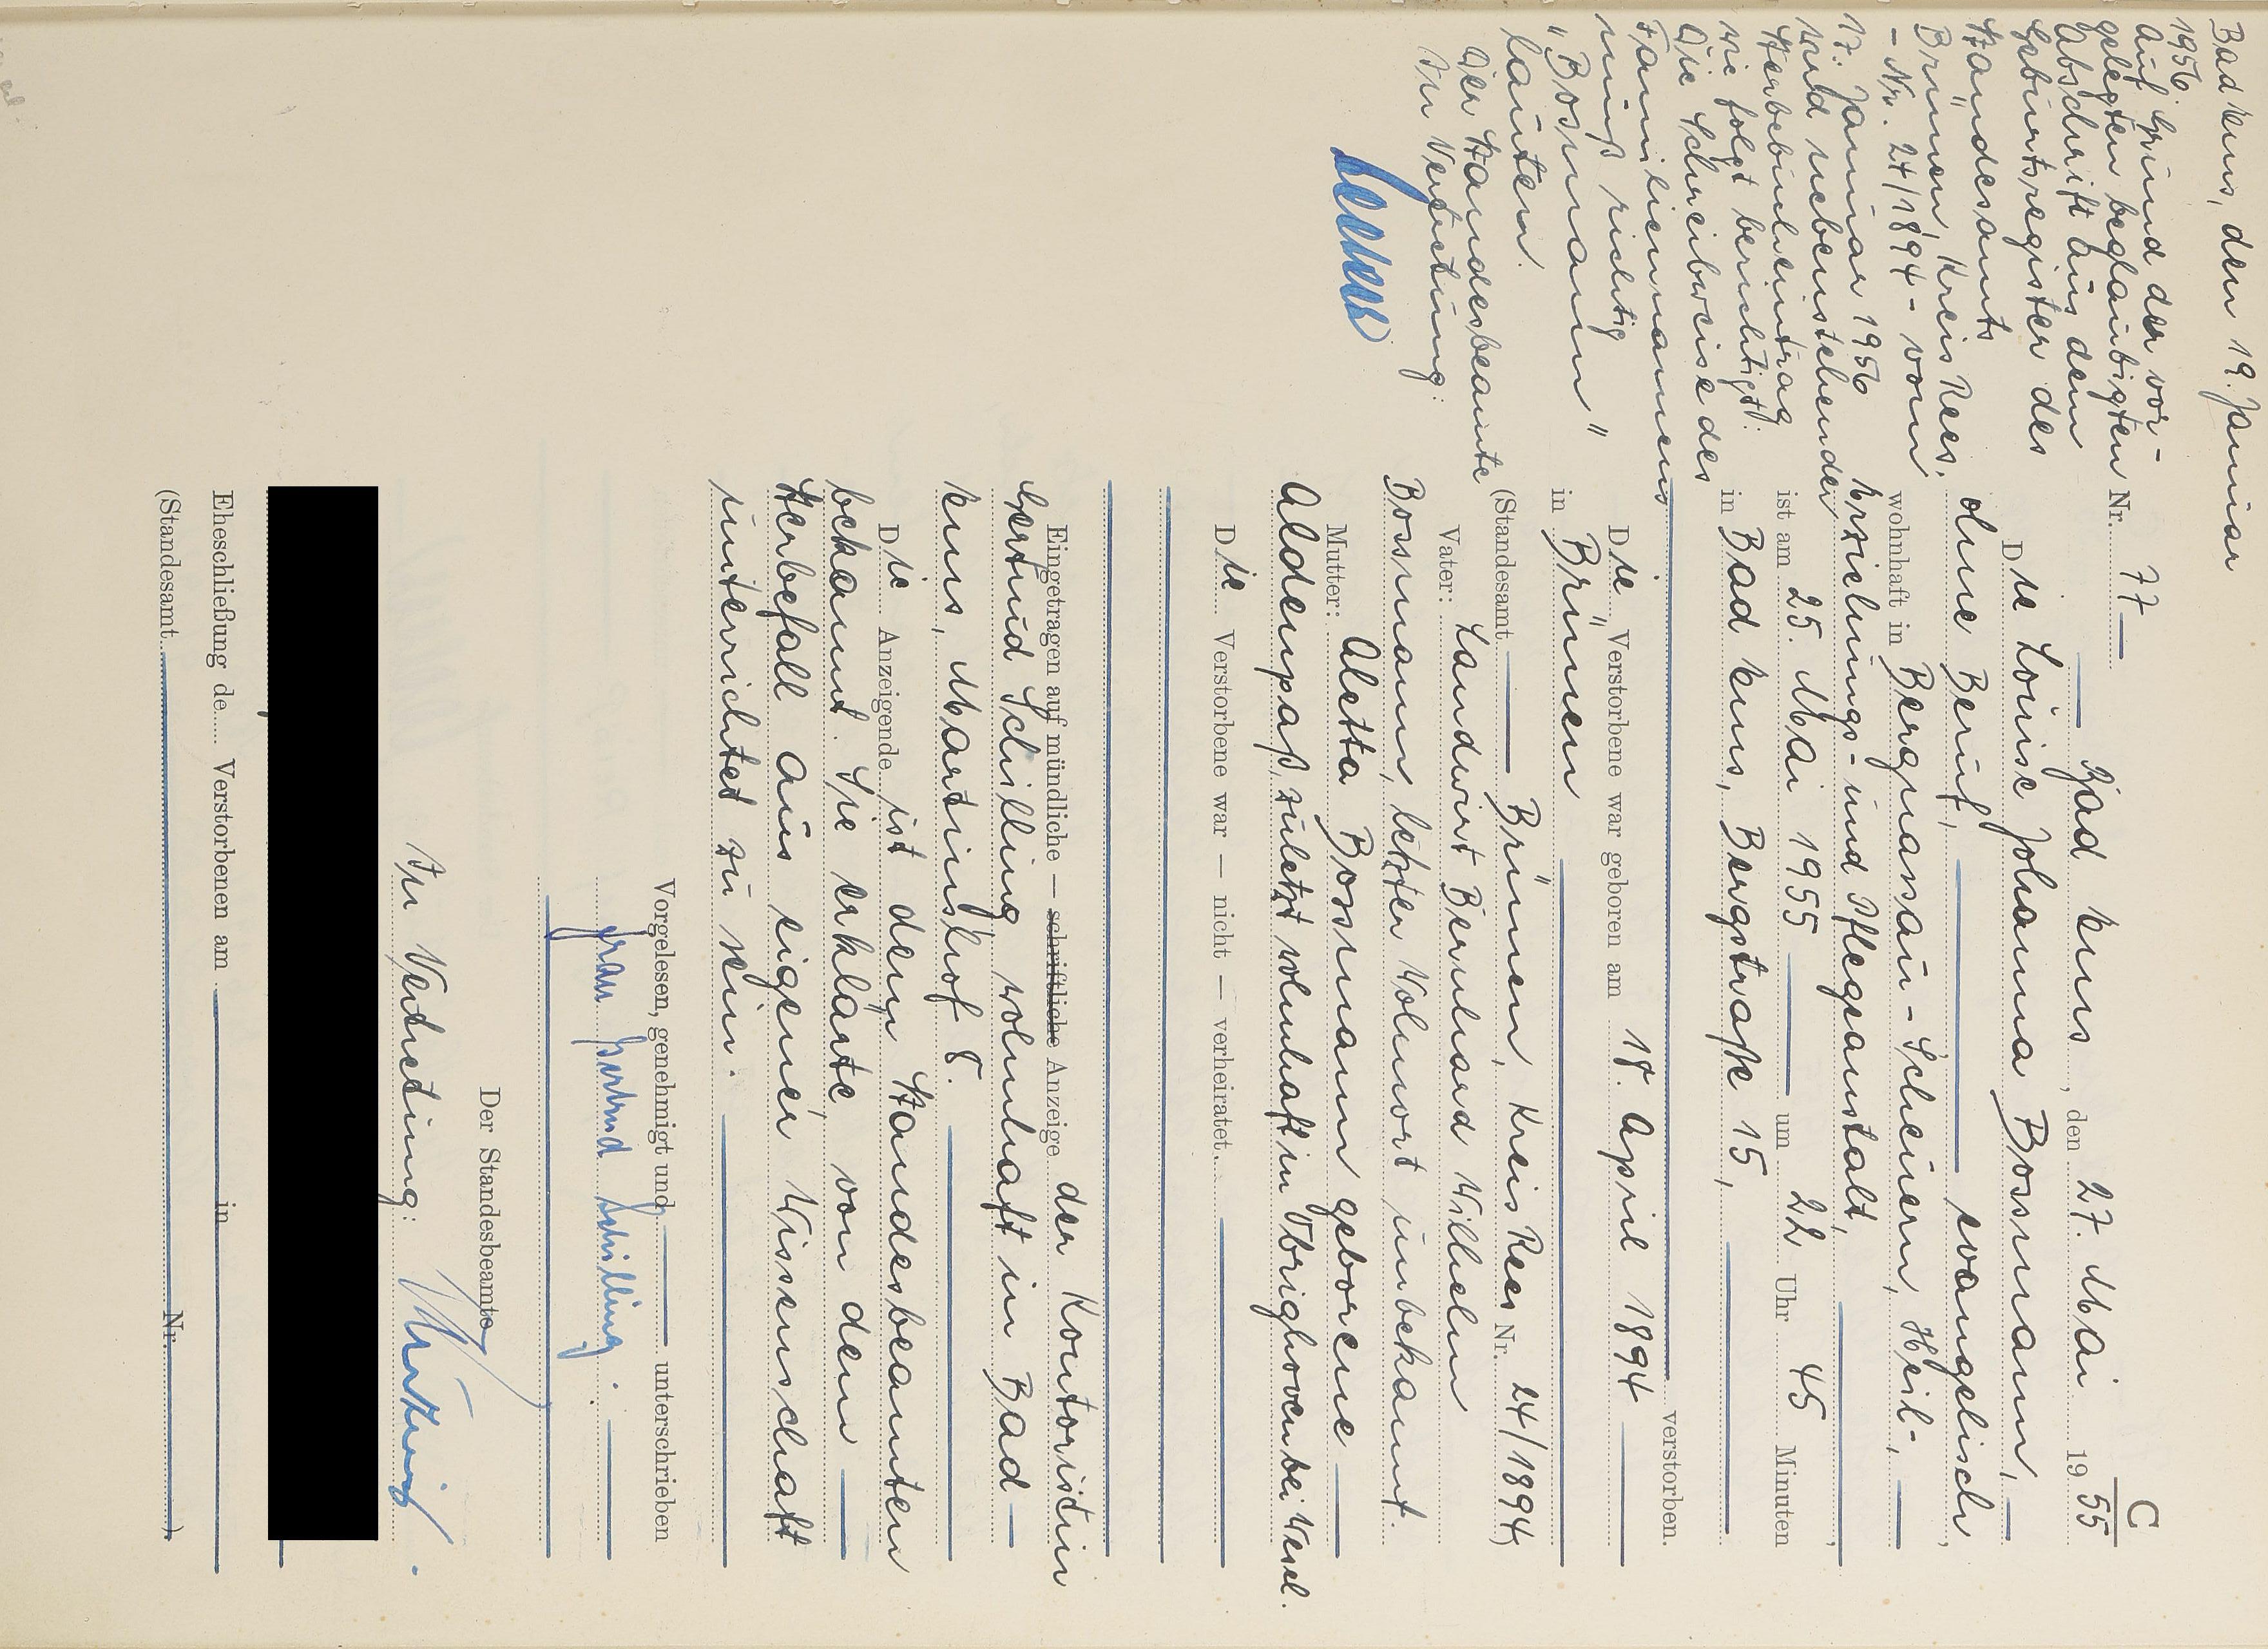 C
Nr. 77
Bad Ems, den 27. Mai 1955
Die Louise Johanna Bossmann,
ohne Beruf, evangelisch,
wohnhaft in Bergnassau-Scheuern, Heil-,
Erziehungs- und Pflegeanstalt,
ist am 25. Mai 1955 um 22 Uhr 45 Minuten
in Bad Ems, Bergstraße 15,
verstorben.
Die Verstorbene war geboren am 18. April 1894
in Brünen
(Standesamt Brünen, Kreis Rees Nr. 24/1894)
Vater: Landwirt Bernhard Wilhelm
Bossmann, letzter Wohnort unbekannt.
Mutter: Aletta Bossmann geborene
Aldenpaß, zuletzt wohnhaft in Obrighoven bei Wesel.
Die Verstorbene war — nicht — verheiratet.
Eingetragen auf mündliche — schriftliche Anzeige der Kontoristin
Gertrud Schilling wohnhaft in Bad
Ems, Martinshof 8.
Die Anzeigende ist dem Standesbeamten
bekannt. Sie erklärte, von dem
Sterbefall aus eigener Wissenschaft
unterrichtet zu sein.
Vorgelesen, genehmigt und unterschrieben
Frau Gertrud Schilling.
Der Standesbeamte
In Vertretung:
Eheschließung de Verstorbenen am in
(Standesamt Nr. )
Bad Ems, den 19. Januar
1956.
Auf Grund der vor-
gelegten beglaubigten
Abschrift aus dem
Geburtsregister des
Standesamts
Brünen, Kreis Rees.
- Nr. 24/1894 - vom
17. Januar 1956
wird nebenstehender
Sterbebucheintrag
wie folgt berichtigt:
Die Schreibweise des
Familiennamens
muß richtig
"Bosmann"
lauten.
Der Standesbeamte
In Vertretung: